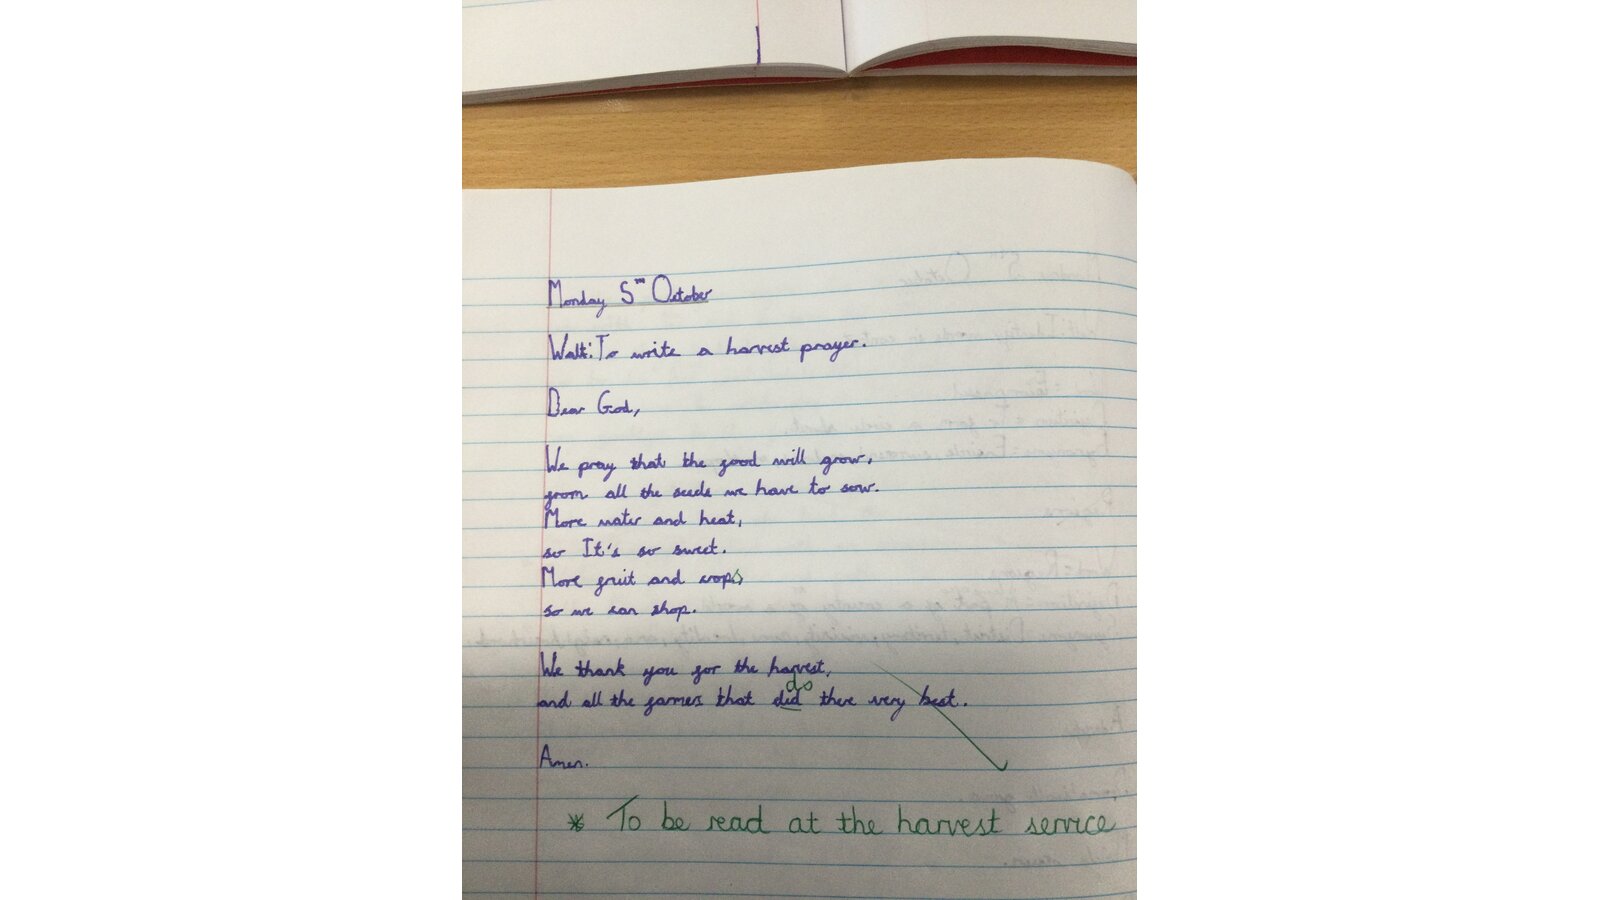 Monday 5th October
Walt: To write a harvest prayer.
Dear God,
We pray that the food will grow,
from all the seeds we have to sow.
More water and heat,
so It's so sweet.
More fruit and crops,
so we can shop.
We thank you for the harvest,
do
and all the farmers that did there very best.
Amen.
* To be read at the harvest service